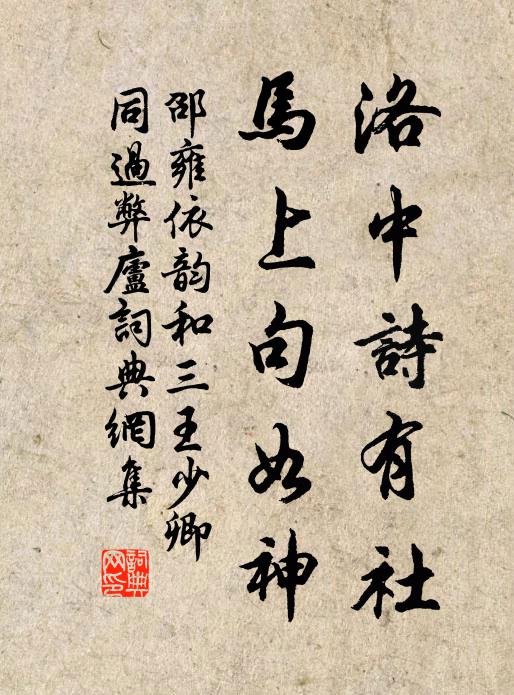 洛中詩有社
馬上句如神
邵雍依韵和三王少卿
同過弊廬詞典網集
詞典
网印